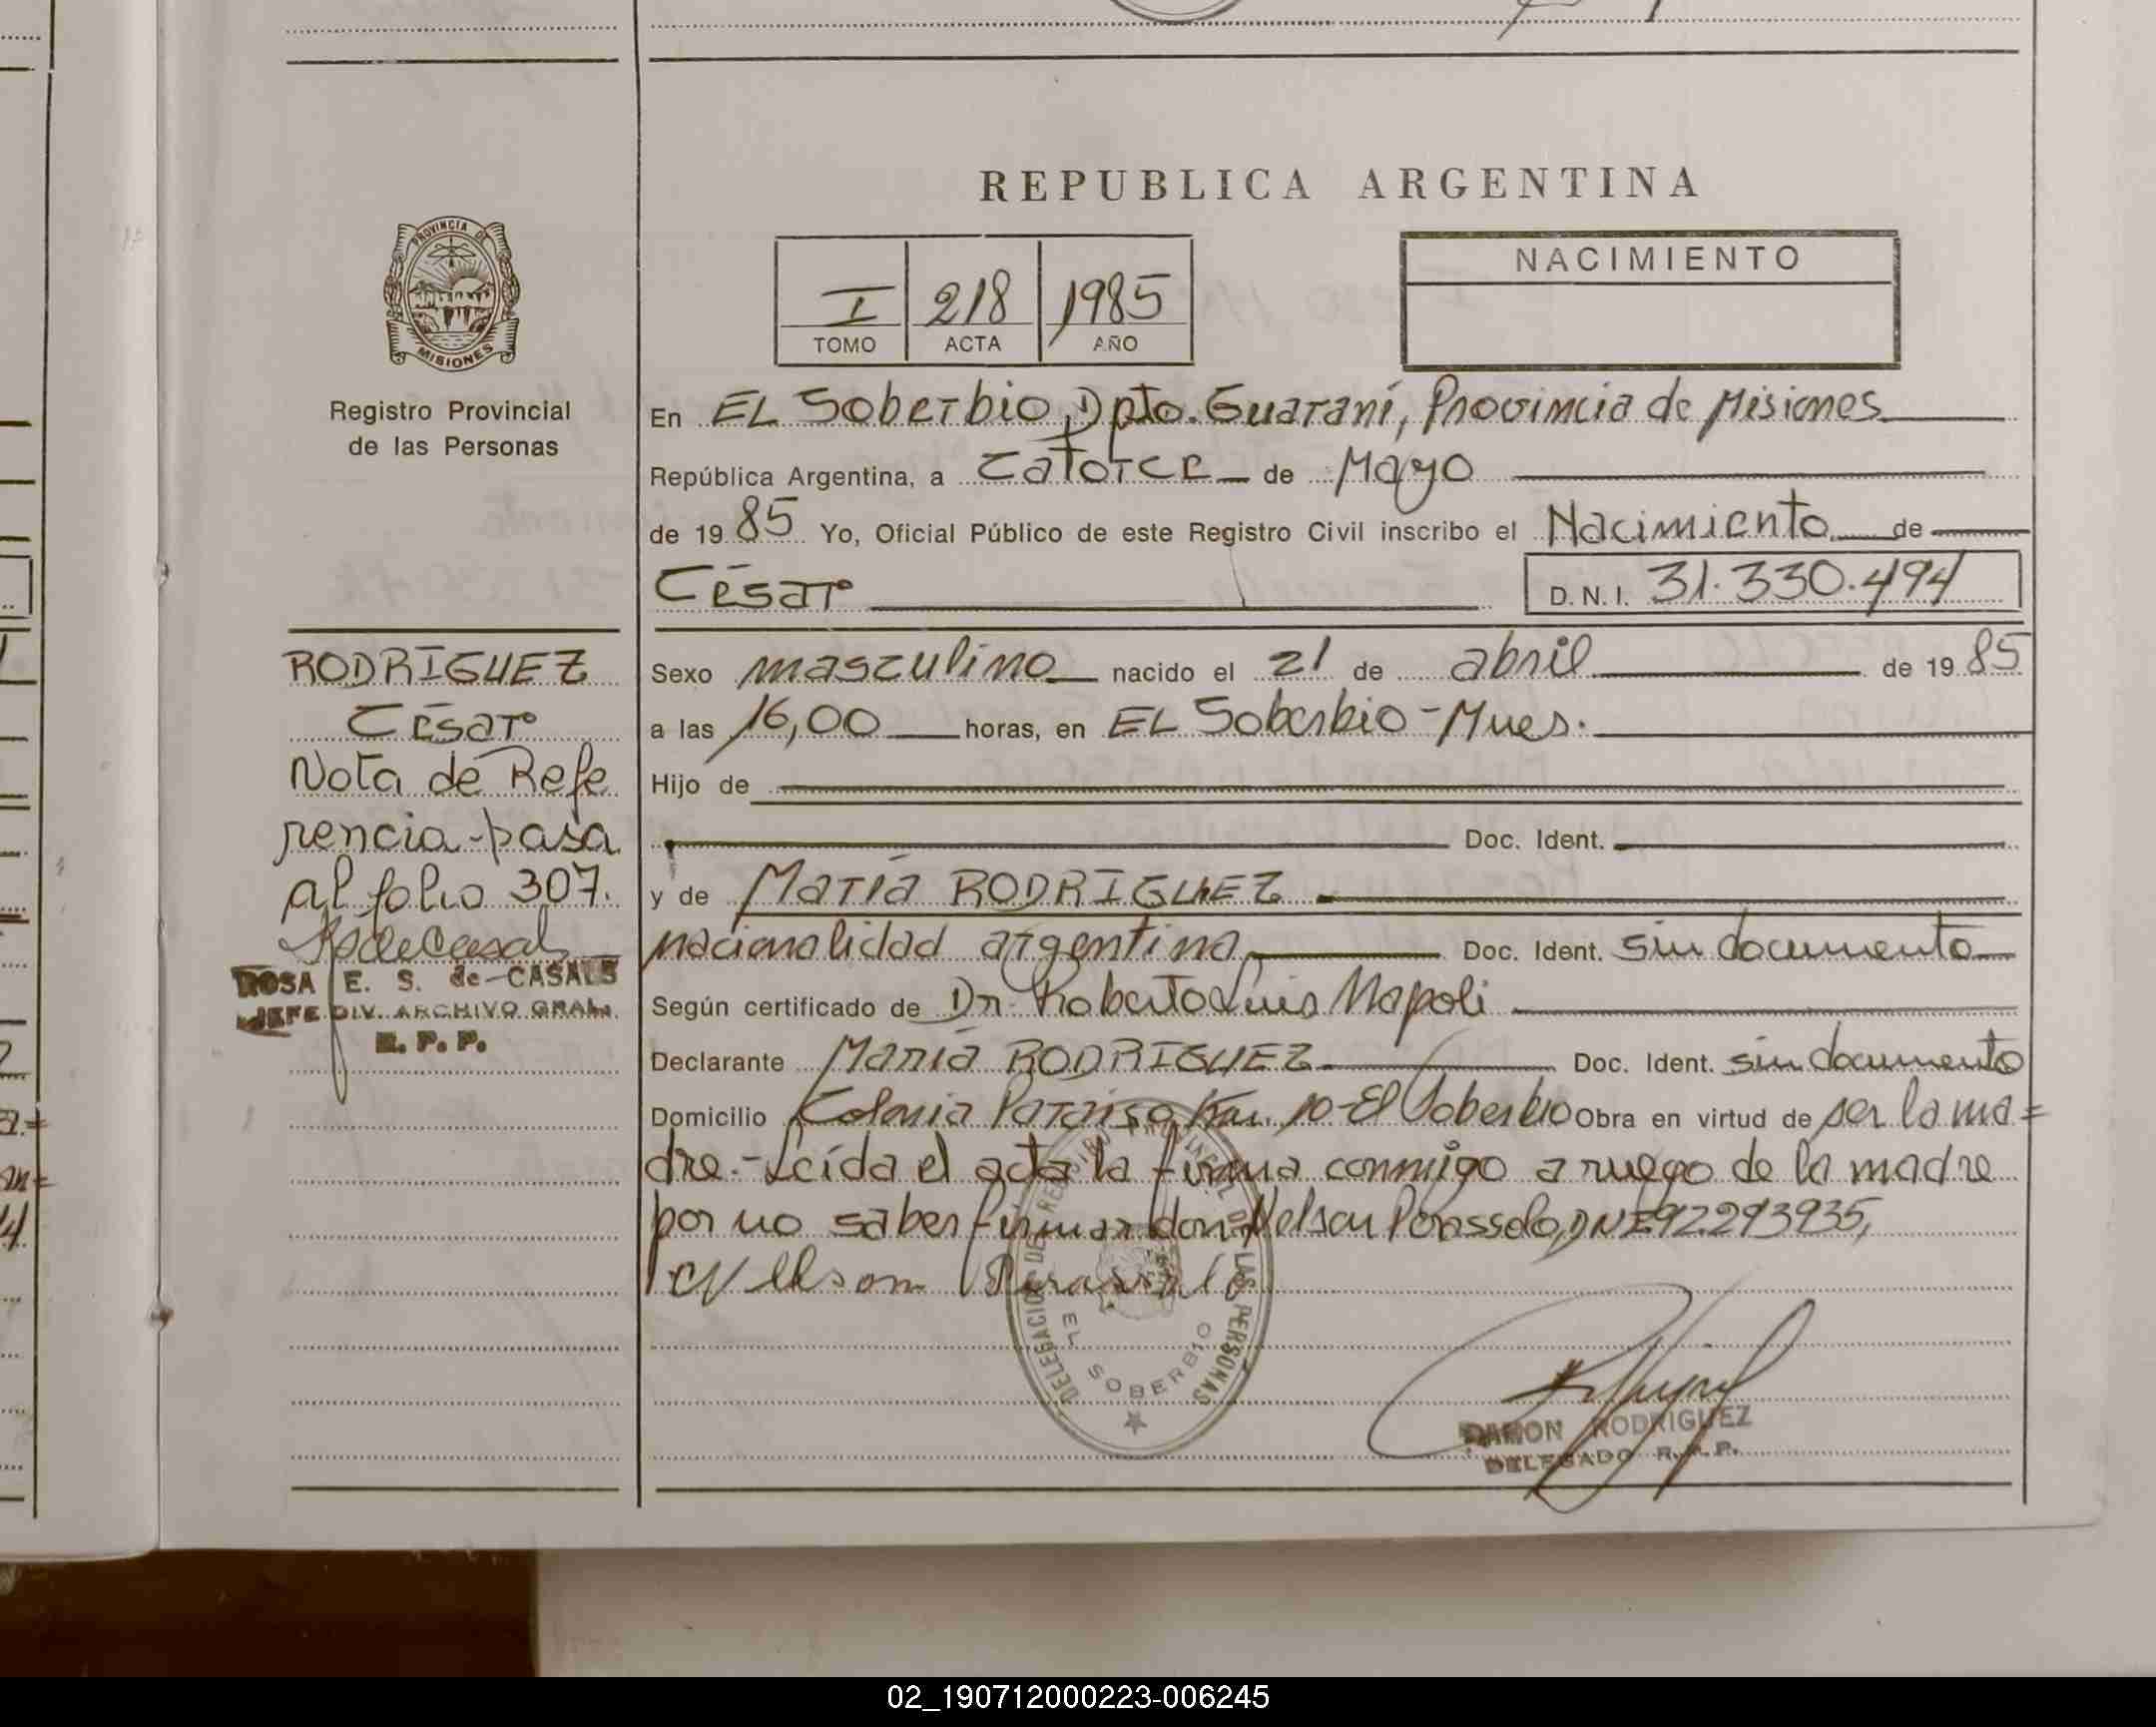 REPUBLICA ARGENTINA
PROVINCIA DE
MISIONES
Registro Provincial
de las Personas
NACIMIENTO
I 218 1985
TOMO ACTA AÑO
En EL Soberbio, Dpto. Guaraní, Provincia de Misiones
República Argentina, a Catorce de Mayo
de 1985 Yo, Oficial Público de este Registro Civil inscribo el Nacimiento de
César D.N.I. 31.330.494
RODRIGUEZ
César
Nota de Refe
rencia-pasa
al folio 307.
ROSA E. S. de CASALS
JEFE DIV. ARCHIVO GRAL.
R. P. P.
Sexo masculino nacido el 21 de abril de 1985
a las 16,00 horas, en EL Soberbio-Mnes.
Hijo de
Doc. Ident.
y de María RODRIGUEZ
nacionalidad argentina Doc. Ident. sin documento
Según certificado de Dr. Roberto Luis Napoli
Declarante María RODRIGUEZ Doc. Ident. sin documento
Domicilio Colonia Paraiso Km. 10-El Soberbio Obra en virtud de ser la ma=
dre.-Leída el acta la firma conmigo a ruego de la madre
por no saber firmar don Nelson DNI 92.293935,
DELEGACION DEL REGISTRO PROVINCIAL DE LAS PERSONAS
EL SOBERBIO
RAMON RODRIGUEZ
DELEGADO R.P.P.
02_190712000223-006245